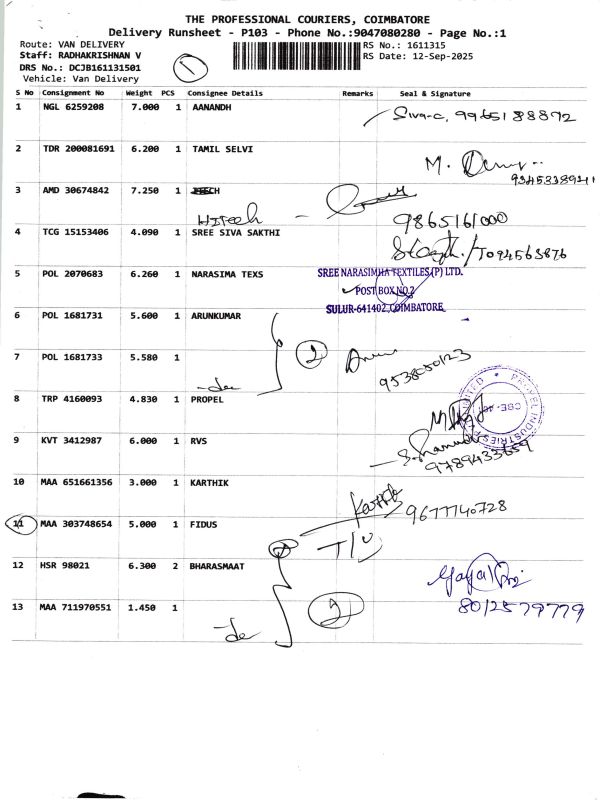 THE PROFESSIONAL COURIERS, COIMBATORE
Delivery Runsheet - P103 - Phone No.:9047080280 - Page No.:1
Route: VAN DELIVERY
Staff: RADHAKRISHNAN V
DRS No.: DCJB161131501
Vehicle: Van Delivery
1
RS No.: 1611315
RS Date: 12-Sep-2025
S No Consignment No Weight PCS Consignee Details Remarks Seal & Signature
1 NGL 6259208 7.000 1 AANANDH
Siva-c, 9965188872
2 TDR 200081691 6.200 1 TAMIL SELVI
M.
3 AMD 30674842 7.250 1
Hitech
9865161000
4 TCG 15153406 4.090 1 SREE SIVA SAKTHI
5 POL 2070683 6.260 1 NARASIMA TEXS
SREE NARASIMHA TEXTILES (P) LTD.
POST BOX NO.2
SULUR-641402, COIMBATORE
6 POL 1681731 5.600 1 ARUNKUMAR
2
7 POL 1681733 5.580 1
-do
9538050123
8 TRP 4160093 4.830 1 PROPEL
PROPEL INDUSTRIES
CBE-
9 KVT 3412987 6.000 1 RVS
9789433659
10 MAA 651661356 3.000 1 KARTHIK
Karthik
9677740728
11 MAA 303748654 5.000 1 FIDUS
12 HSR 98021 6.300 2 BHARASMAAT
2
8012579779
13 MAA 711970551 1.450 1
-do